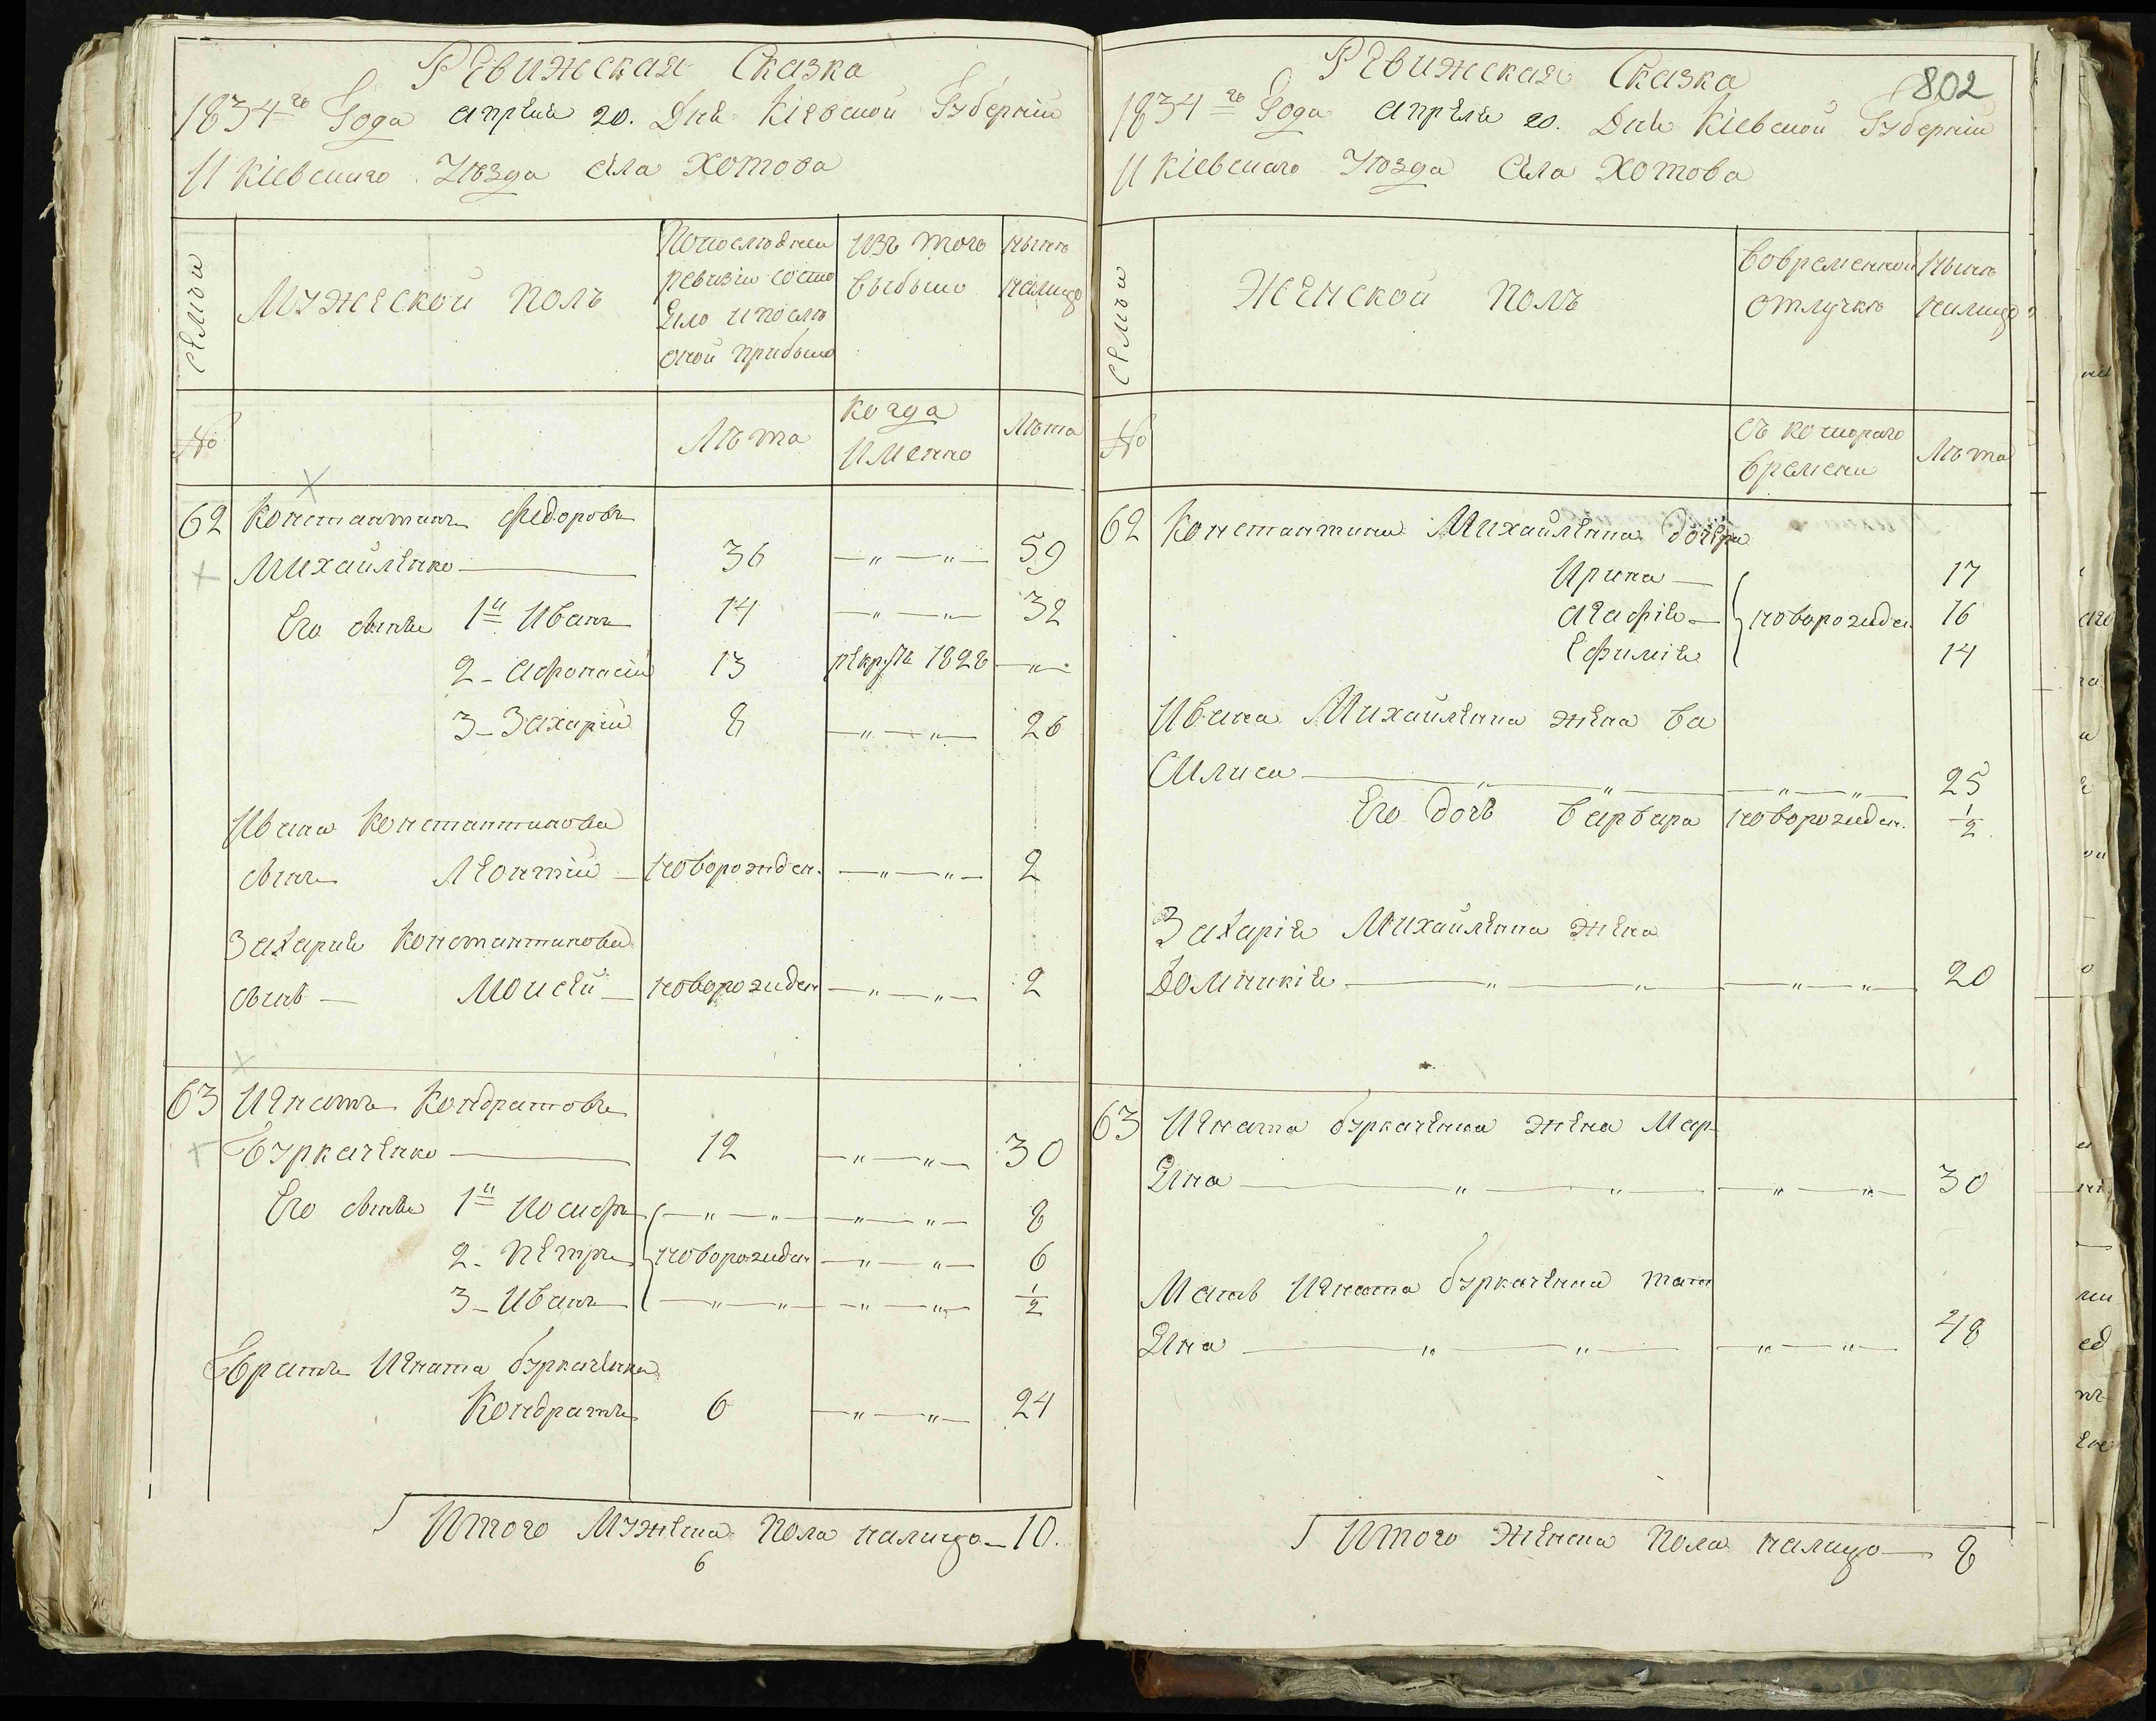 Ревижская Сказка
1834го Года апреля 20. Дня Кіевской Губерніи
И Кіевскаго Уѣзда Села Хотова
Семьи
Мужеской полъ
По последней
ревизіи состо
яло и послѣ
оной прибыло
изъ того
выбыло
нынѣ
налицо
№
Лѣта
Когда
Именно
Лѣта
62 Константинъ Федоровъ
Михайленко 36 —„—„— 59
Его сынъя 1й Иванъ 14 —„—„— 32
2 - Афонасій 13 рекрутъ 1828 —„—
3 - Захарій 8 —„—„— 26
Ивана Константинова
сынъ Леонтій — новорожден. —„—„— 2
Захарія Константинова
сынъ — Моисей — новорожден —„—„— 2
63 Игнатъ Кондратовъ
Буркаченко 12 —„—„— 30
Его сынъя 1й Иосифъ —„—„— —„—„— 8
2 - Петръ новорожден —„—„— 6
3 - Иванъ —„—„— —„—„— 1/2
Братъ Игната Буркаченка
Кондратъ 6 —„—„— 24
Итого Мужеска Пола налицо — 10.
6
802
Ревижская Сказка
1834го Года апреля 20. Дня Кіевской Губерніи
И Кіевскаго Уѣзда Села Хотова
Семьи
Женской полъ
Вовременной
отлучкѣ
Нынѣ
налицо
№
Съ котораго
времени
Лѣта
62 Константина Михайленка дочери
Ирина — 17
Агафія — новорожден. 16
Ефимія 14
Ивана Михайленка жена Ва
Силиса —„—„— —„—„— 25
Его дочь Варвара новорожден. 1/2
Захарія Михайленка жена
Домникія —„—„— —„—„— 20
63 Игната Буркаченка жена Мар-
яна —„—„— —„—„— 30
Мать Игната Буркаченка тат
яна —„—„— —„—„— 48
Итого Женска Пола налицо — 8